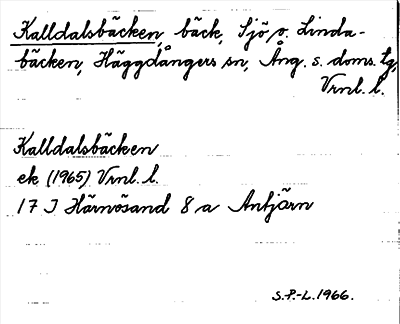 Kalldalsbäcken, bäck, Sjö o. Linda-
bäcken, Häggdångers sn, Ång. s. doms. tg,
Vrnl. l.
Kalldalsbäcken
ek (1965) Vrnl. l.
17 J Härnösand 8 a Antjärn
S.P.-L. 1966.